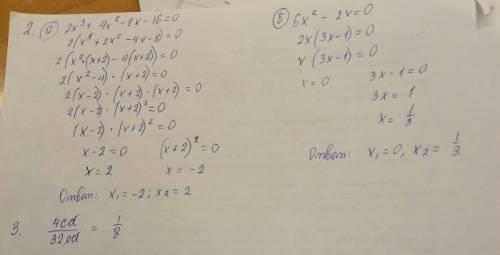 2. а) 2x³ + 4x² - 8x - 16 = 0
2(x³ + 2x² - 4x - 8) = 0
2(x²(x+2) - 4(x+2)) = 0
2(x² - 4) · (x+2) = 0
2(x-2) · (x+2) · (x+2) = 0
2(x-2) · (x+2)² = 0
(x-2) · (x+2)² = 0
x - 2 = 0 (x+2)² = 0
x = 2 x = -2
Ответ: x₁ = -2 ; x₂ = 2
б) 6x² - 2x = 0
2x(3x-1) = 0
x(3x-1) = 0
x = 0 3x - 1 = 0
3x = 1
x = 1/3
Ответ: x₁ = 0 ; x₂ = 1/3
3. 4cd/32cd = 1/8